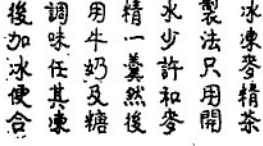 冰凍麥精茶
製法只用開
水少許和麥
精一羹然後
用牛奶及糖
調味任其凍
後加冰便合